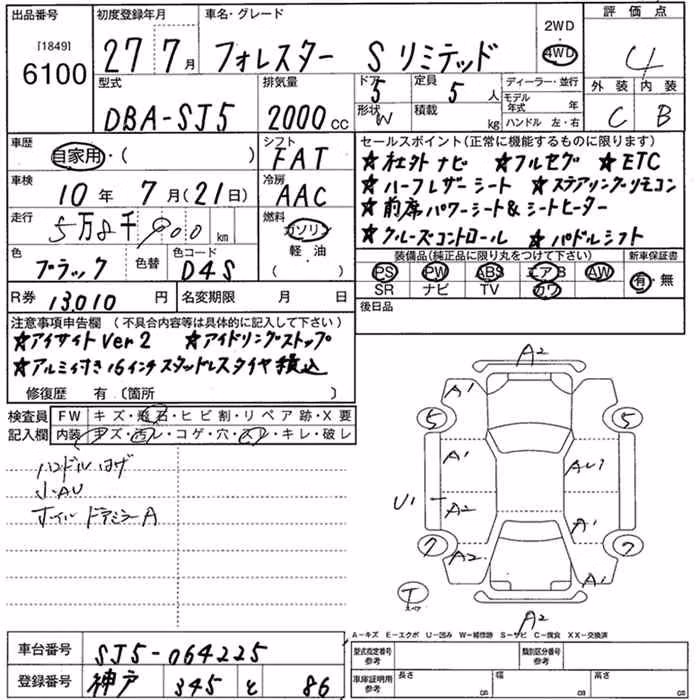 出品番号 初度登録年月 車名・グレード 2WD 評価点
[1849] 6100 27 7月 フォレスター Sリミテッド 4WD 4
型式 排気量 ドア 定員 ディーラー・並行 外装 内装
DBA-SJ5 2000cc 5 5人 モデル年式 年 C B
形状 W 積載 kg ハンドル 左・右
車歴 シフト セールスポイント(正常に機能するものに限ります)
自家用・( ) FAT ★社外ナビ ★フルセグ ★ETC
車検 冷房 ★ハーフレザーシート ★ステアリングリモコン
10年 7月(21日) AAC ★前席パワーシート&シートヒーター
走行 5万8千900km 燃料 ガソリン ★クルーズコントロール ★パドルシフト
軽・油 装備品(純正品に限り丸をつけて下さい) 新車保証書
色 色替 色コード ( ) PS PW ABS エアB AW 有・無
ブラック D4S SR ナビ TV カワ
R券 13,010円 名変期限 月 日 後日品
注意事項申告欄 (不具合内容等は具体的に記入して下さい)
★アイサイトVer2 ★アイドリングストップ
★アルミ付き16インチスタッドレスタイヤ積込
修復歴 有〔箇所 〕
検査員 FW キズ・飛石・ヒビ割・リペア跡・X要
記入欄 内装 キズ・汚レ・コゲ・穴・スレ・キレ・破レ
ハンドルハゲ
小AU
ホイル ドアミラーA
A2
A1
5 5
A1 AU1
U1 A2 A1
7 A2 7
A1
T
A2
A-キズ E-エクボ U-凹み W-補修跡 S-サビ C-腐食 XX-交換済
車台番号 SJ5-064225 型式指定番号 参考 類別区分番号 参考
登録番号 神戸 345 と 86 車庫証明用 参考 長さ cm 幅 cm 高さ cm